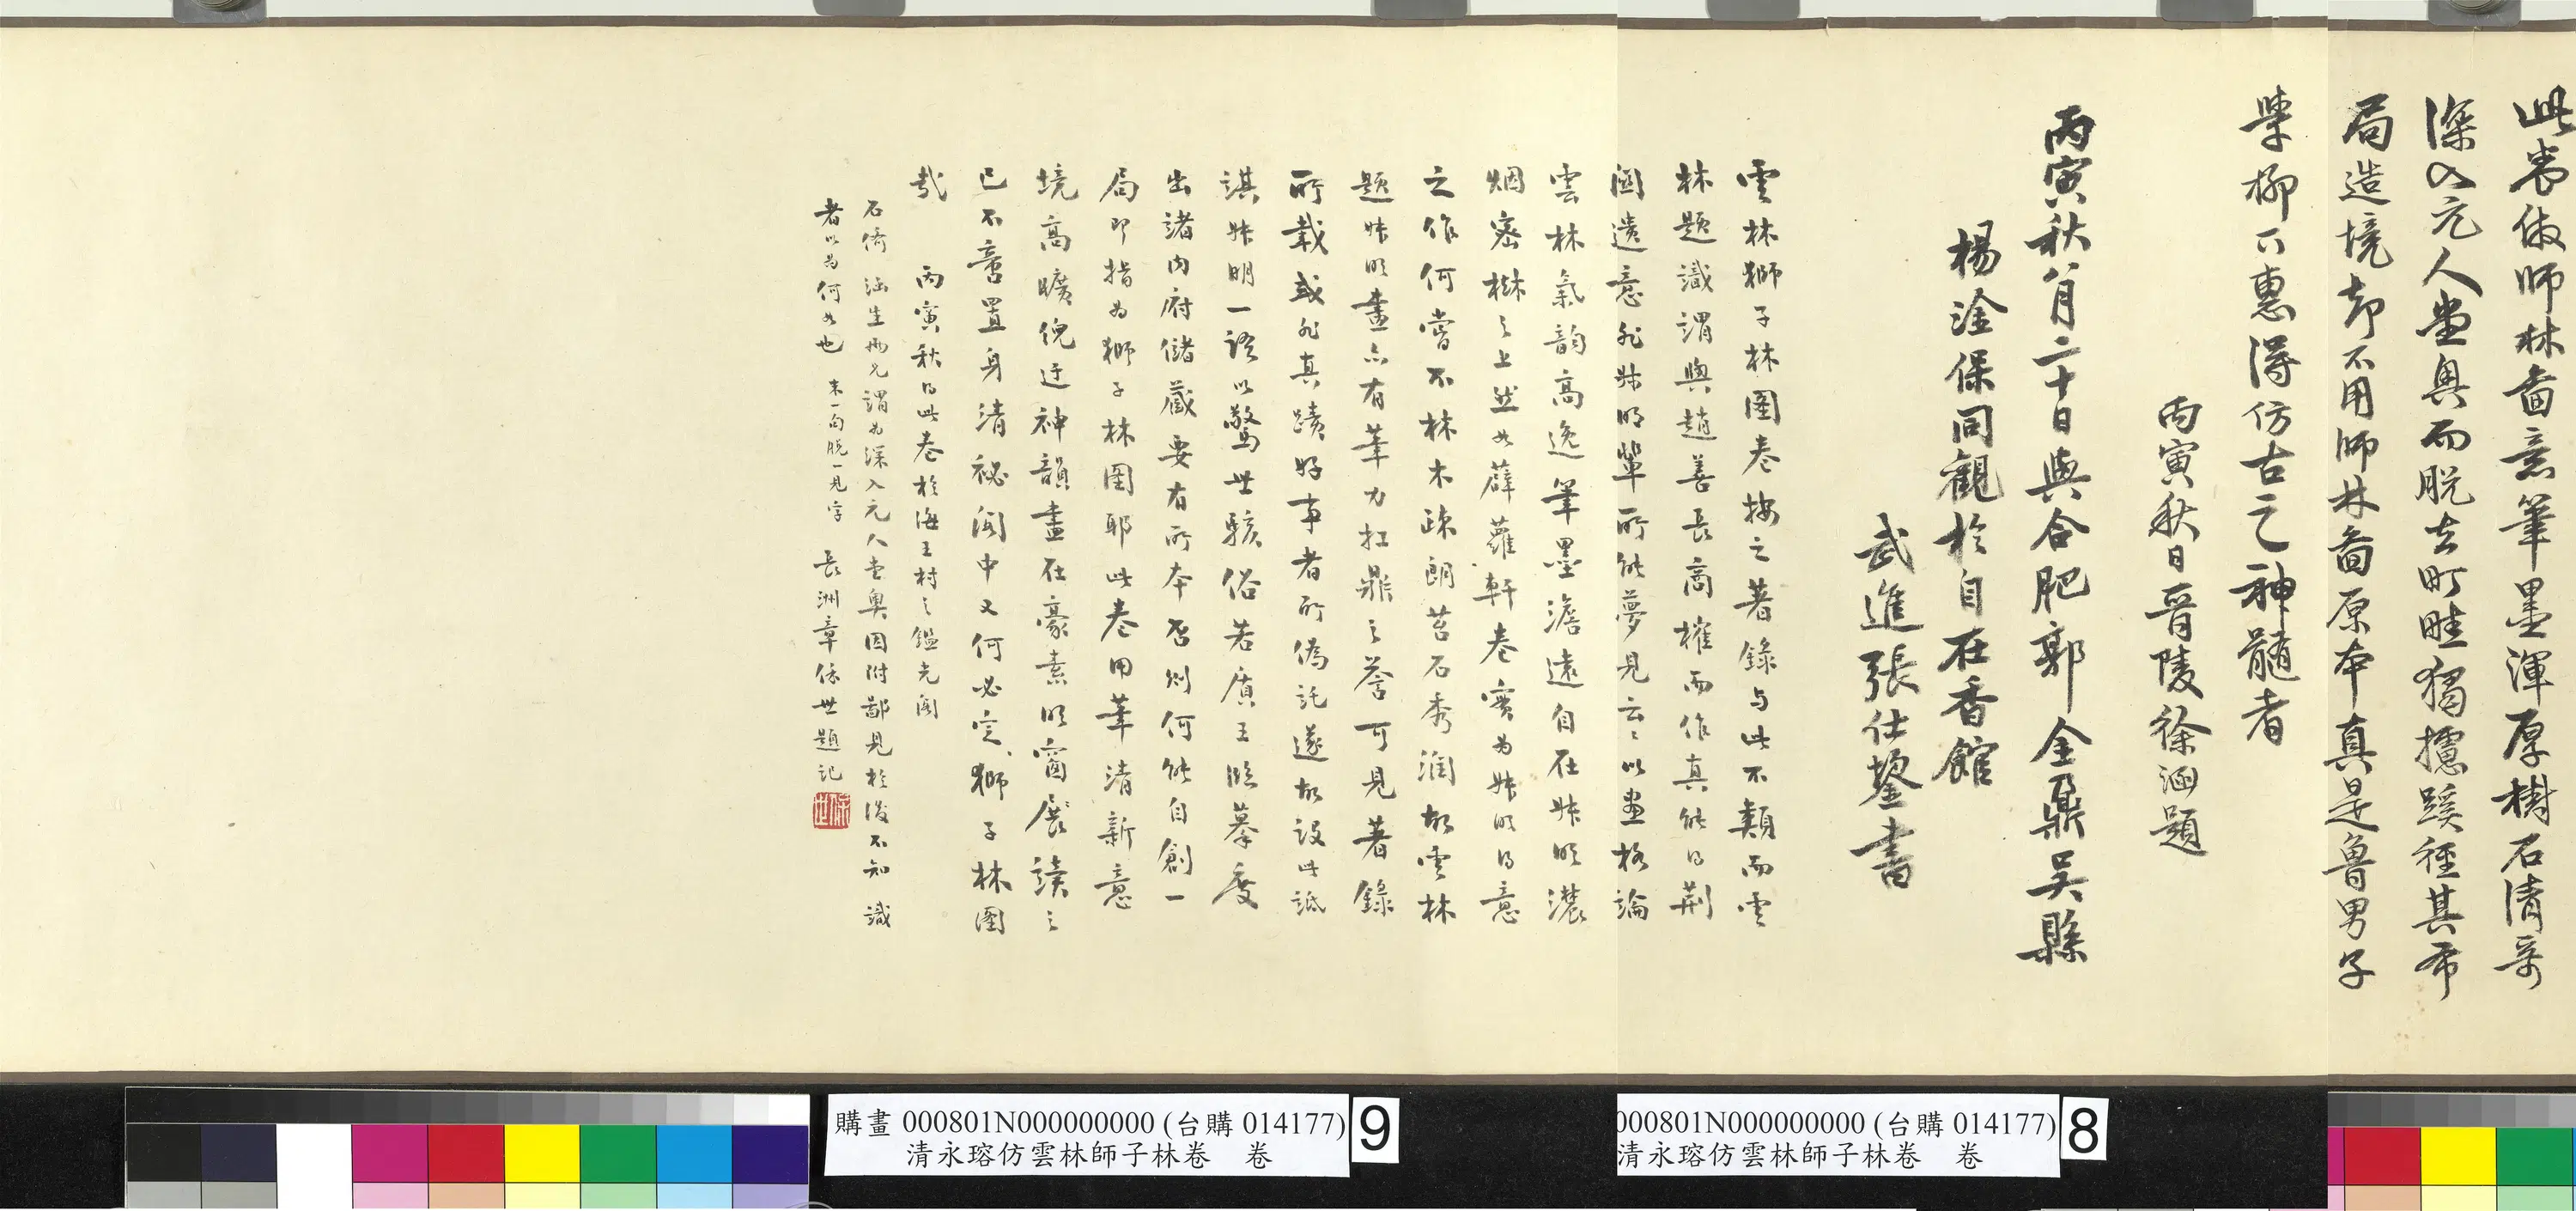 此卷倣師林畫意筆墨渾厚樹石清奇
深入元人堂奧而脫去町畦獨攄蹊徑其布
局造境却不用師林畫原本真是魯男子
學柳下惠得仿古之神髓者
丙寅秋日晉陵徐涵題
丙寅秋八月二十日與合肥郭金鼎吳縣
楊淦保同觀於自在香館
武進張仕鋆書
雲林獅子林圖卷按之著錄与此不類而雲
林題識謂與趙善長商榷而作真能得荊
關遺意非時明輩所能夢見云云以畫格論
雲林氣韵高逸筆墨澹遠自在時明濃
烟密樹之上然如薜蘿軒卷實為時明得意
之作何嘗不林木疎朗苔石秀潤故雲林
題時明畫亦有筆力扛鼎之譽可見著錄
所載或非真蹟好事者所偽託遂故設此詆
諆時明一語以驚世駭俗若質王臨摹度
出諸內府儲藏要有所本否則何能自創一
局即指為獅子林圖耶此卷用筆清新意
境高曠倪迂神韻盡在豪素明窗展讀之
已不啻置身清祕閣中又何必定獅子林圖
哉 丙寅秋得此卷於海王村之鑑光閣
石儕 涵生兩兄謂為深入元人堂奧因附鄙見於後不知 識
者以為何如也 末一句脫一見字 長洲章保世題記
保世
購畫 000801N000000000 (台購 014177)
清永瑢仿雲林師子林卷 卷
9
000801N000000000 (台購 014177)
清永瑢仿雲林師子林卷 卷
8